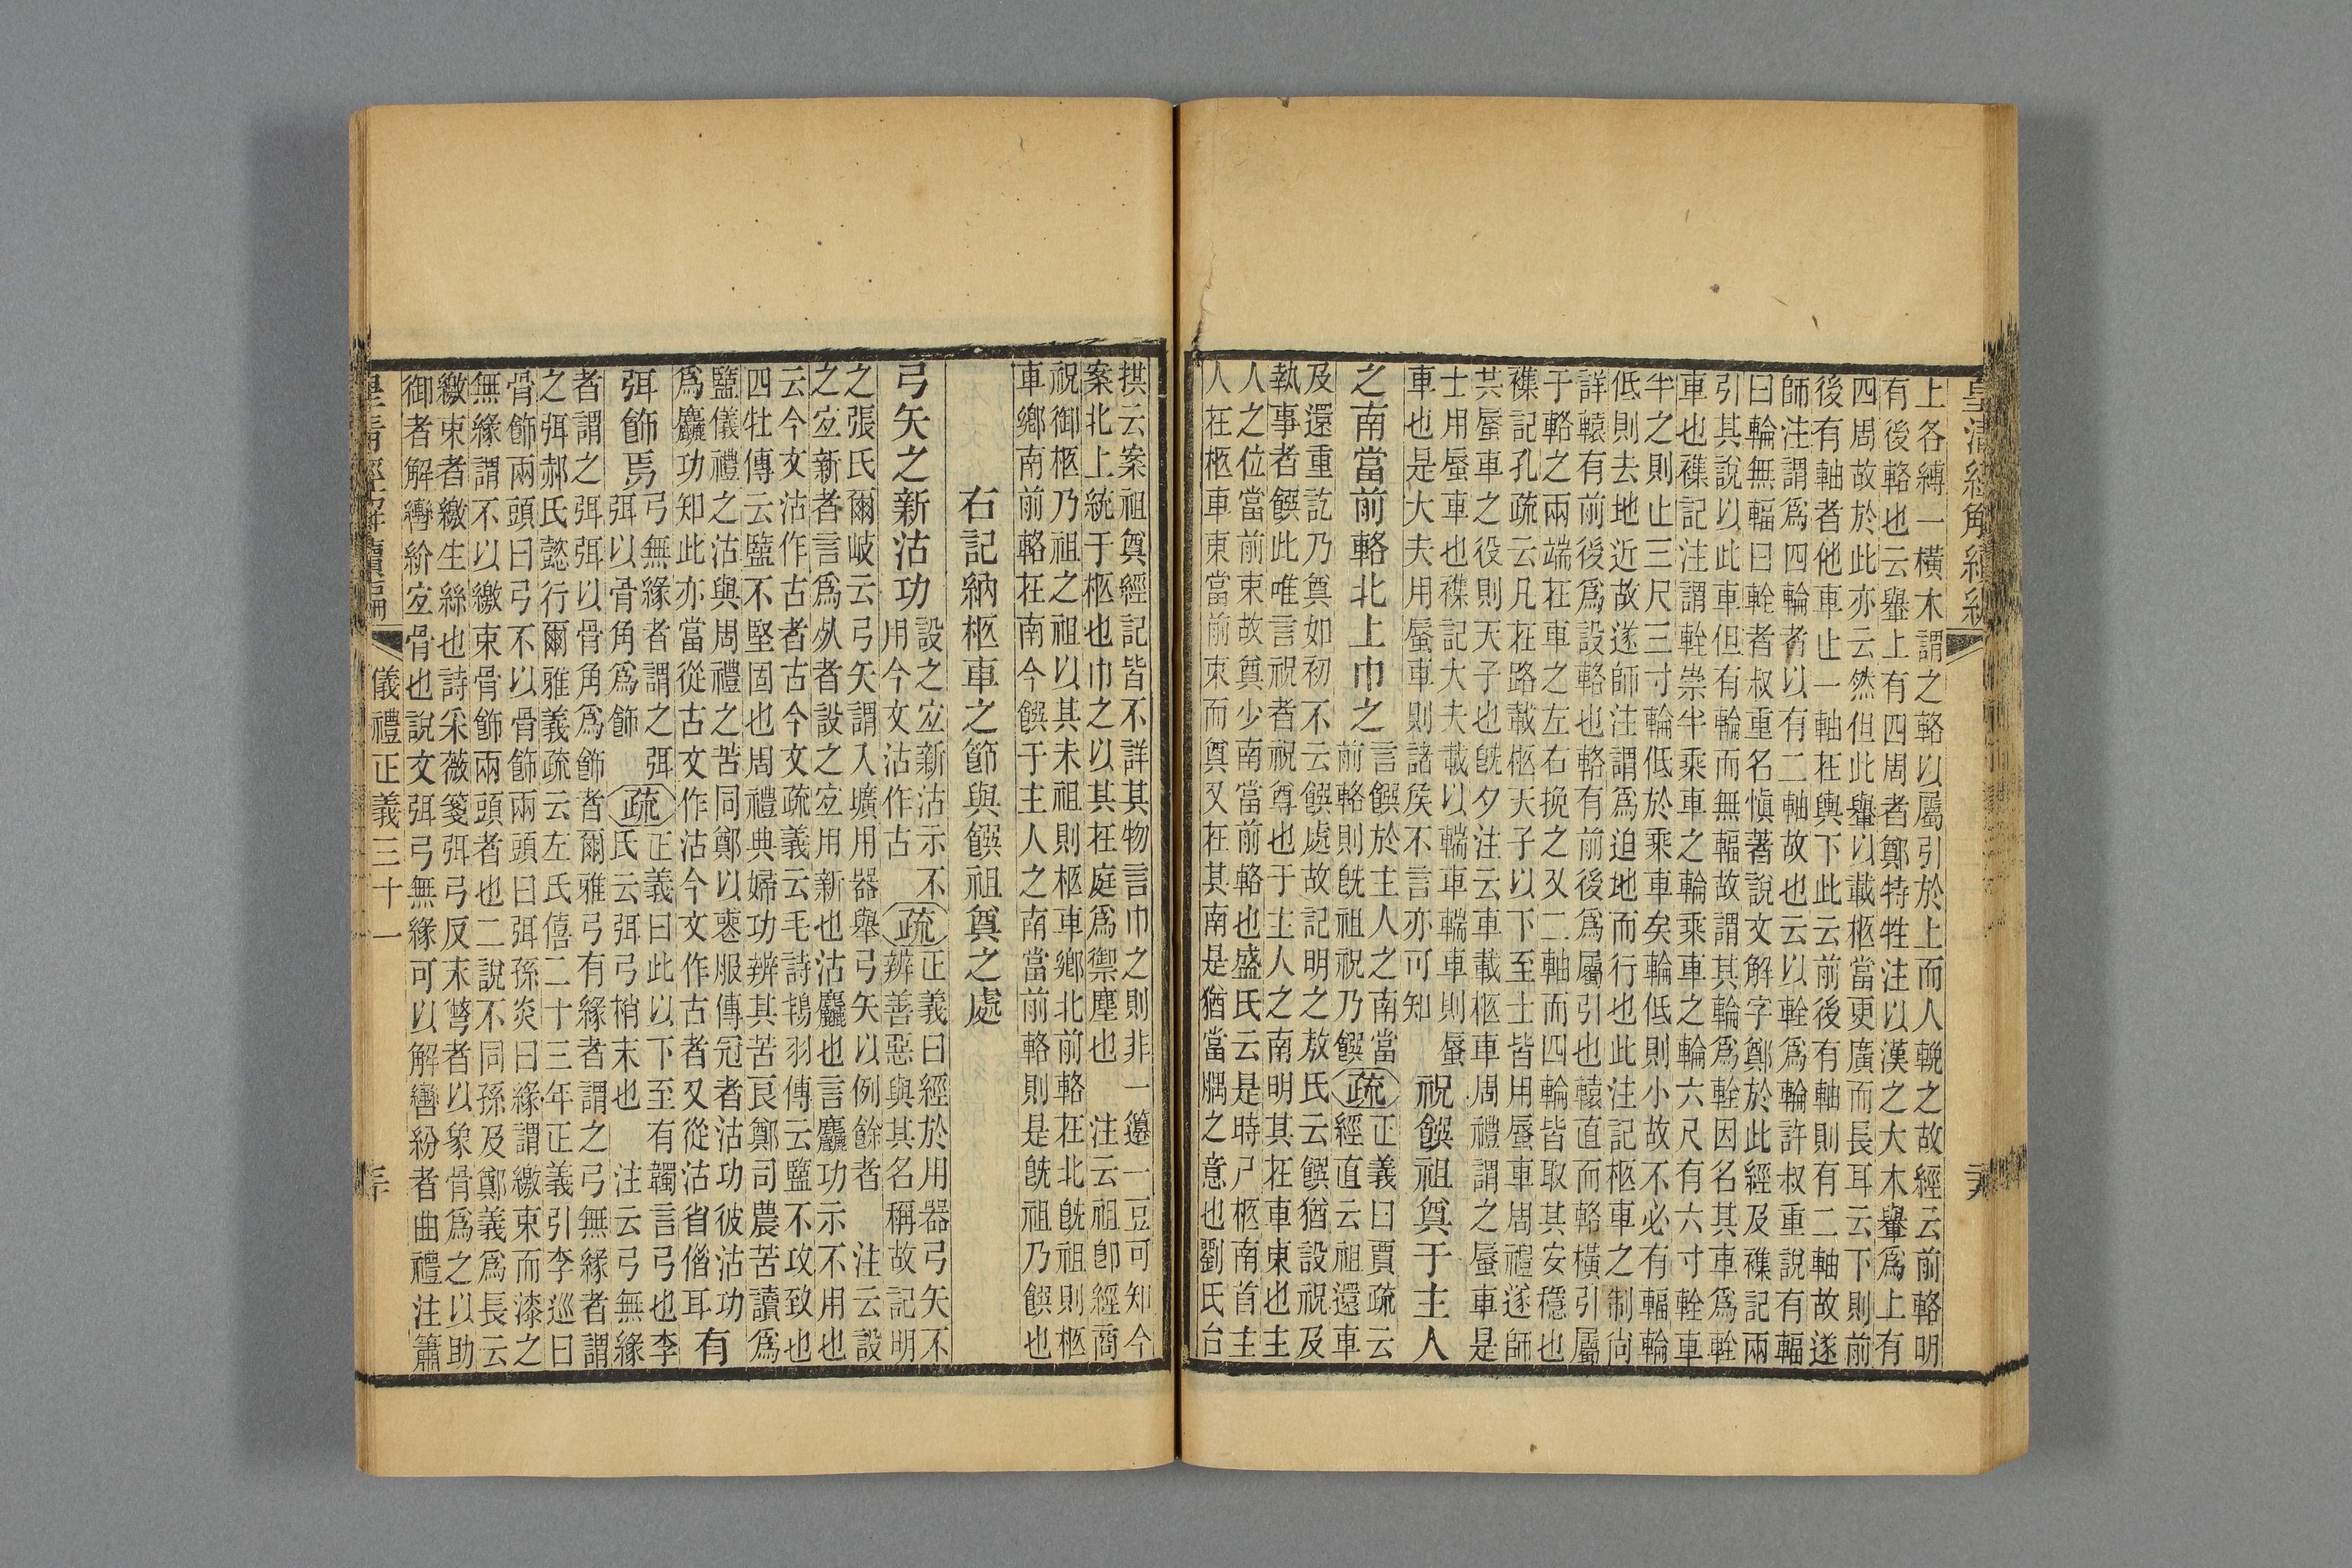 上各縛一橫木謂之輅以屬引於上而人輓之故經云前輅明
有後輅也云轝上有四周者鄭特牲注以漢之大木轝爲上有
四周故於此亦云然但此轝以載柩當更廣而長耳云下則前
後有軸者他車止一軸在輿下此云前後有軸則有二軸故遂
師注謂爲四輪者以有二軸故也云以輇爲輪許叔重說有輻
曰輪無輻曰輇者叔重名愼著說文解字鄭於此經及襍記兩
引其說以此車但有輪而無輻故謂其輪爲輇因名其車爲輇
車也襍記注謂輇崇半乘車之輪乘車之輪六尺有六寸輇車
半之則止三尺三寸輪低於乘車矣輪低則小故不必有輻輪
低則去地近故遂師注謂爲迫地而行也此注記柩車之制尙
詳轅有前後爲設輅也輅有前後爲屬引也轅直而輅橫引屬
于輅之兩端在車之左右挽之又二軸而四輪皆取其安穩也
襍記孔疏云凡在路載柩天子以下至士皆用蜃車周禮遂師
共蜃車之役則天子也旣夕注云車載柩車周禮謂之蜃車是
士用蜃車也襍記大夫載以輲車輲車則蜃
車也是大夫用蜃車則諸矦不言亦可知
祝饌祖奠于主人
之南當前輅北上巾之
言饌於主人之南當
前輅則旣祖祝乃饌
疏
正義曰賈疏云
經直云祖還車
及還重訖乃奠如初不云饌處故記明之敖氏云饌猶設祝及
執事者饌此唯言祝者祝尊也于主人之南明其在車東也主
人之位當前束故奠少南當前輅也盛氏云是時尸柩南首主
人在柩車東當前束而奠又在其南是猶當腢之意也劉氏台
拱云案祖奠經記皆不詳其物言巾之則非一籩一豆可知今
案北上統于柩也巾之以其在庭爲禦塵也　注云祖卽經商
祝御柩乃祖之祖以其未祖則柩車鄉北前輅在北旣祖則柩
車鄉南前輅在南今饌于主人之南當前輅則是旣祖乃饌也
右記納柩車之節與饌祖奠之處
弓矢之新沽功
設之宜新沽示不
用今文沽作古
疏
正義曰經於用器弓矢不
辨善惡與其名稱故記明
之張氏爾岐云弓矢謂入壙用器舉弓矢以例餘者　注云設
之宜新者言爲死者設之宜用新也沽麤也言麤功示不用也
云今文沽作古者古今文疏義云毛詩鴇羽傳云盬不攻致也
四牡傳云盬不堅固也周禮典婦功辨其苦良鄭司農苦讀爲
盬儀禮之沽與周禮之苦同鄭以喪服傳冠者沽功彼沽功
爲麤功知此亦當從古文作沽今文作古者又從沽省偕耳
有
弭飾焉
弓無緣者謂之弭
弭以骨角爲飾
疏
正義曰此以下至有韣言弓也李
氏云弭弓梢末也　注云弓無緣
者謂之弭弭以骨角爲飾者爾雅弓有緣者謂之弓無緣者謂
之弭郝氏懿行爾雅義疏云左氏僖二十三年正義引李巡曰
骨飾兩頭曰弓不以骨飾兩頭曰弭孫炎曰緣謂繳束而漆之
無緣謂不以繳束骨飾兩頭者也二說不同孫及鄭義爲長云
繳束者繳生絲也詩采薇箋弭弓反末彆者以象骨爲之以助
御者解轡紒宜骨也說文弭弓無緣可以解轡紛者曲禮注簫
儀禮正義三十一